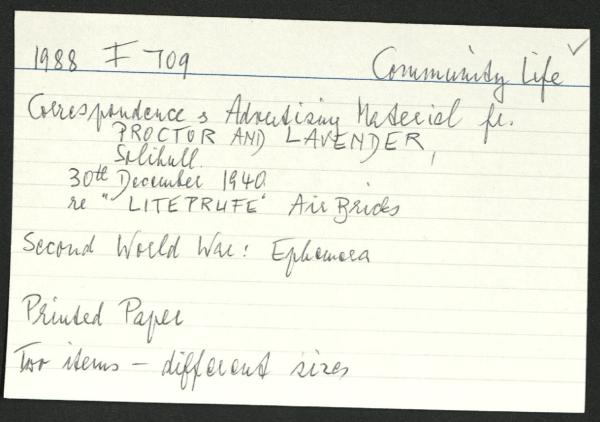 1988 F 709 Community Life
Correspondence & Advertising Material fr.
PROCTOR AND LAVENDER,
Solihull
30th December 1940
re "LITEPRUFE" Air Bricks
Second World War: Ephemera
Printed Paper
Two items – different sizes